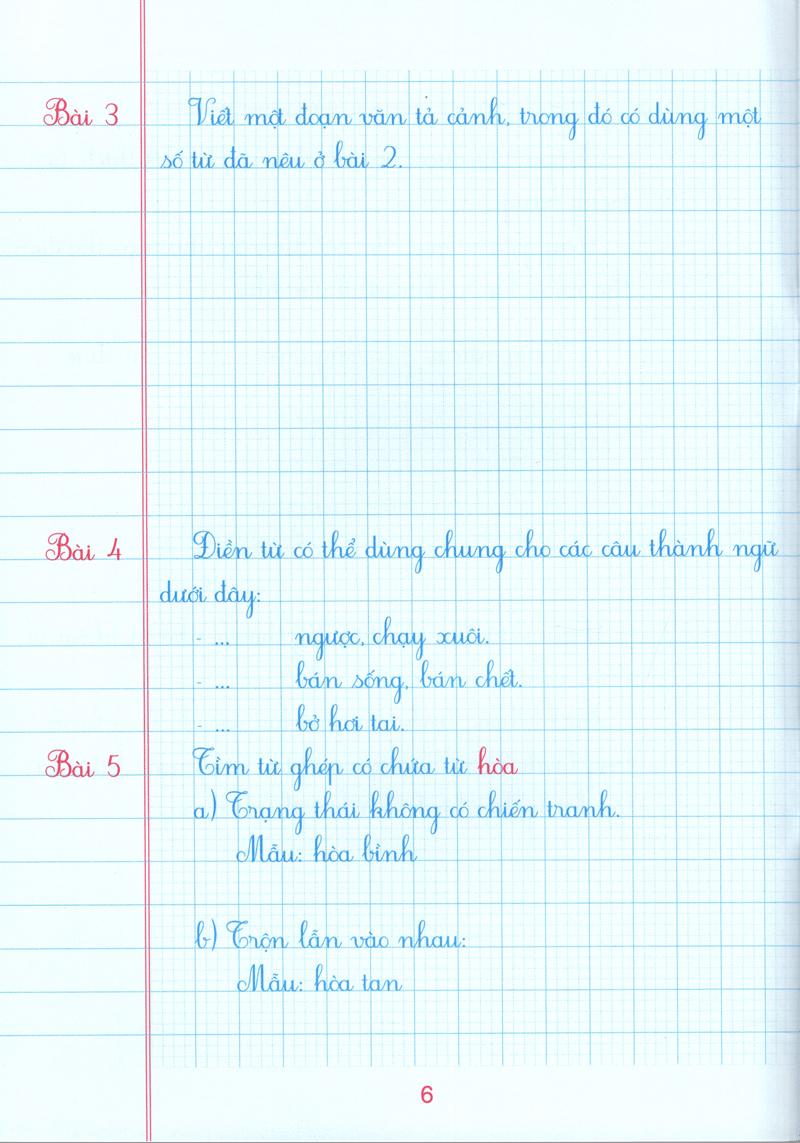 Bài 3 Viết một đoạn văn tả cảnh, trong đó có dùng một
số từ đã nêu ở bài 2.
Bài 4 Điền từ có thể dùng chung cho các câu thành ngữ
dưới đây:
- ... ngược, chạy xuôi.
- ... bán sống, bán chết.
- ... bở hơi tai.
Bài 5 Tìm từ ghép có chứa từ hòa
a) Trạng thái không có chiến tranh.
Mẫu: hòa bình
b) Trộn lẫn vào nhau:
Mẫu: hòa tan
6